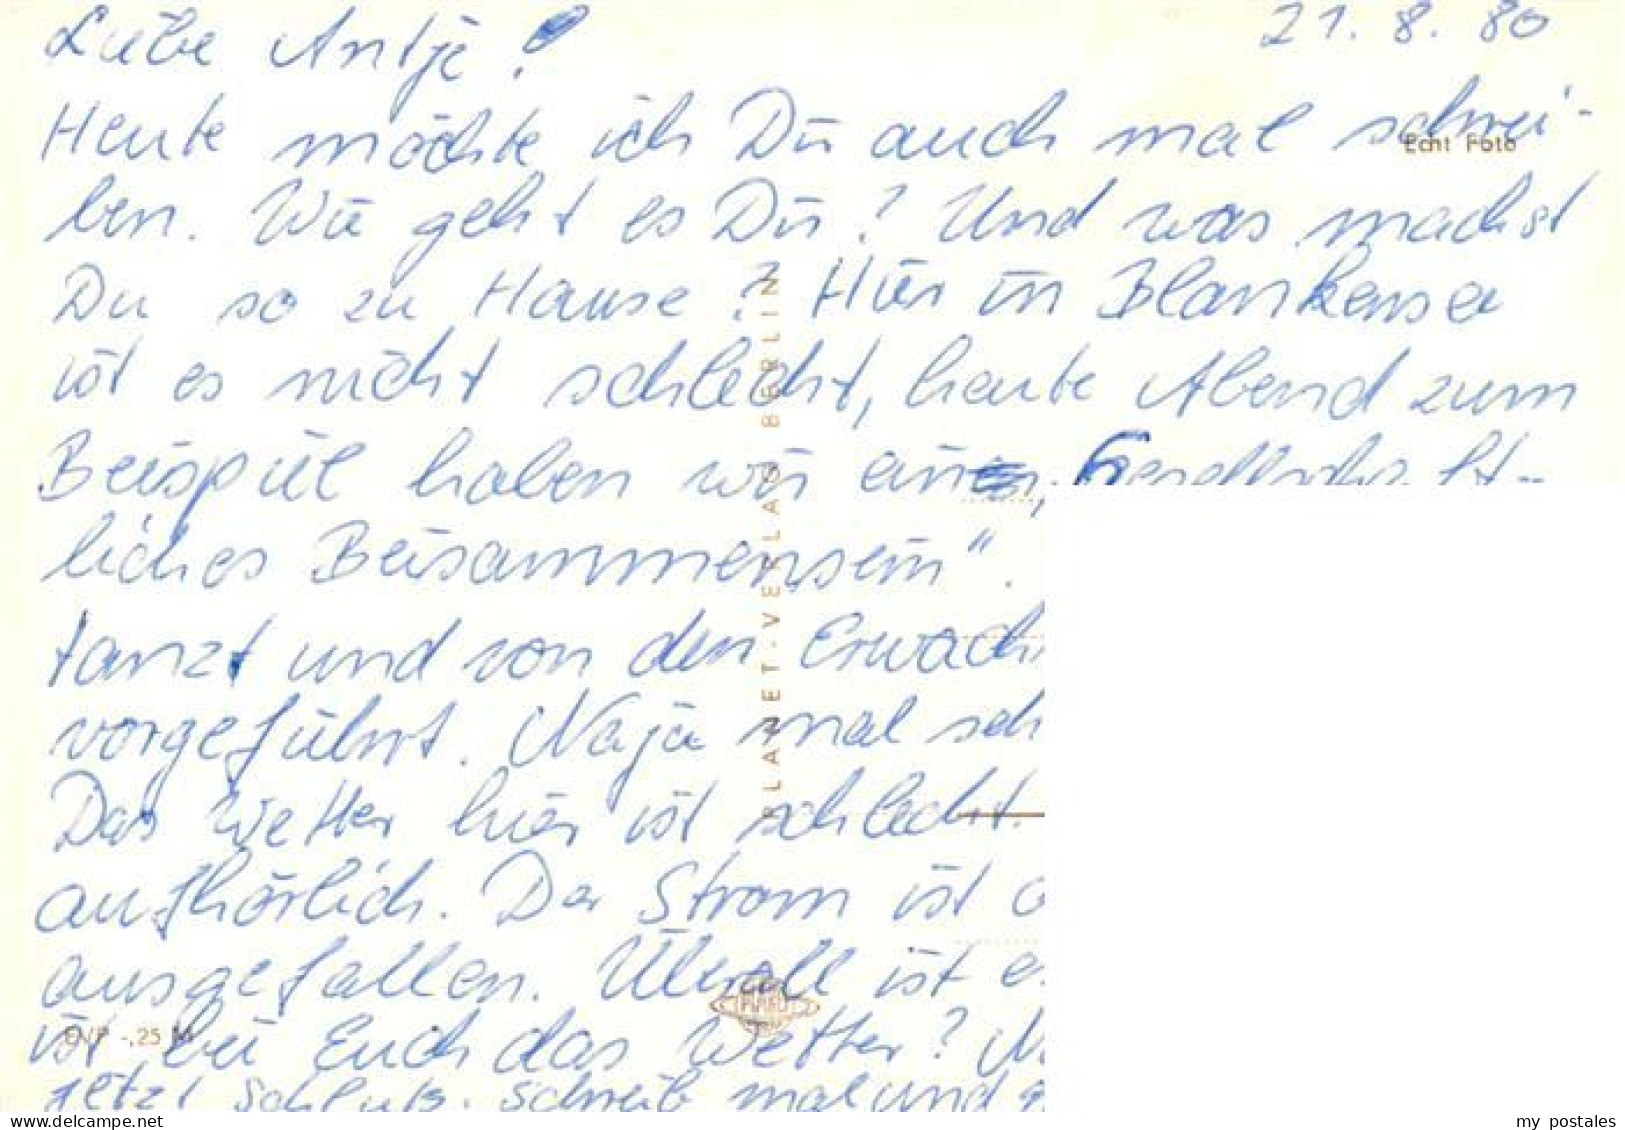 21. 8. 80
Liebe Antje!
Heute möchte ich Dir auch mal schrei-
Echt Foto
ben. Wie geht es Dir? Und was machst
Du so zu Hause? Hier in Blankensee
ist es nicht schlecht, heute Abend zum
Beispiel haben wir ein
liches Beisammensein".
tanzt und von den
vorgeführt. Naja mal
Das Wetter hier ist schlecht.
aufhörlich. Der Strom ist
ausgefallen. Überall ist
ist bei Euch das Wetter?
jetzt Schluß. Schreib mal und
PLANET-VERLAG BERLIN
EVP -,25 M
PLANET
delcampe.net
my_postales